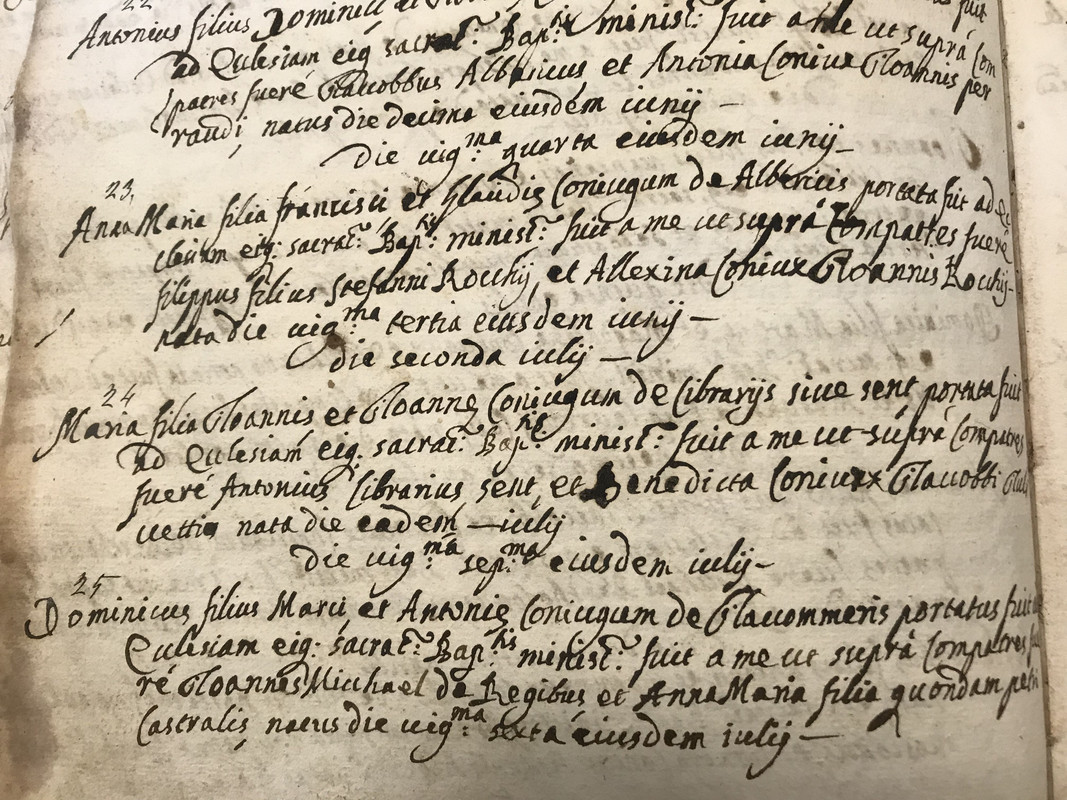 22
Antonius filius Dominici et
ad Eclesiam eiq sacrat: Bap:tis minist: fuit a me ut suprá Com
patres fueré Giacobbus Albricus et Antonia Coniux Gioannis per
raudi, natus die decima eiusdem iunij —
Die uig:ma quarta eiusdem iunij —
23,
Anna Maria filia francisci et Glaudię Coniugum de Albricis portata fuit ad Ec
clesiam eiq: sacrat: Bap:tis minist: fuit a me ut suprá Compatres fueré
filippus filius Stefanni Rochij, et Allexina Coniux Gioannis Rochij-
nata die uig:ma tertia eiusdem iunij —
Die seconda iulij —
24
Maria filia Gioannis et Gioannę Coniugum de Librarijs siue sent portata fuit
ad Eclesiam eiq. sacrat: Bap:tis minist: fuit a me ut suprá Compatres
fueré Antonius Librarius sent, et Benedicta Coniux Giacobbi
uettis nata die eadem — iulij
Die uig:ma sep:ma eiusdem iulij —
25
Dominicus filius Marci, et Antonię Coniugum de Giacommeris portatus fuit
Eclesiam eiq: sacrat: Bap:tis minist: fuit a me ut suprá Compatres fu
ré Gioannes Michael de Regibus et Anna Maria filia quondam petri
Castralis natus die uig:ma sexta eiusdem iulij —